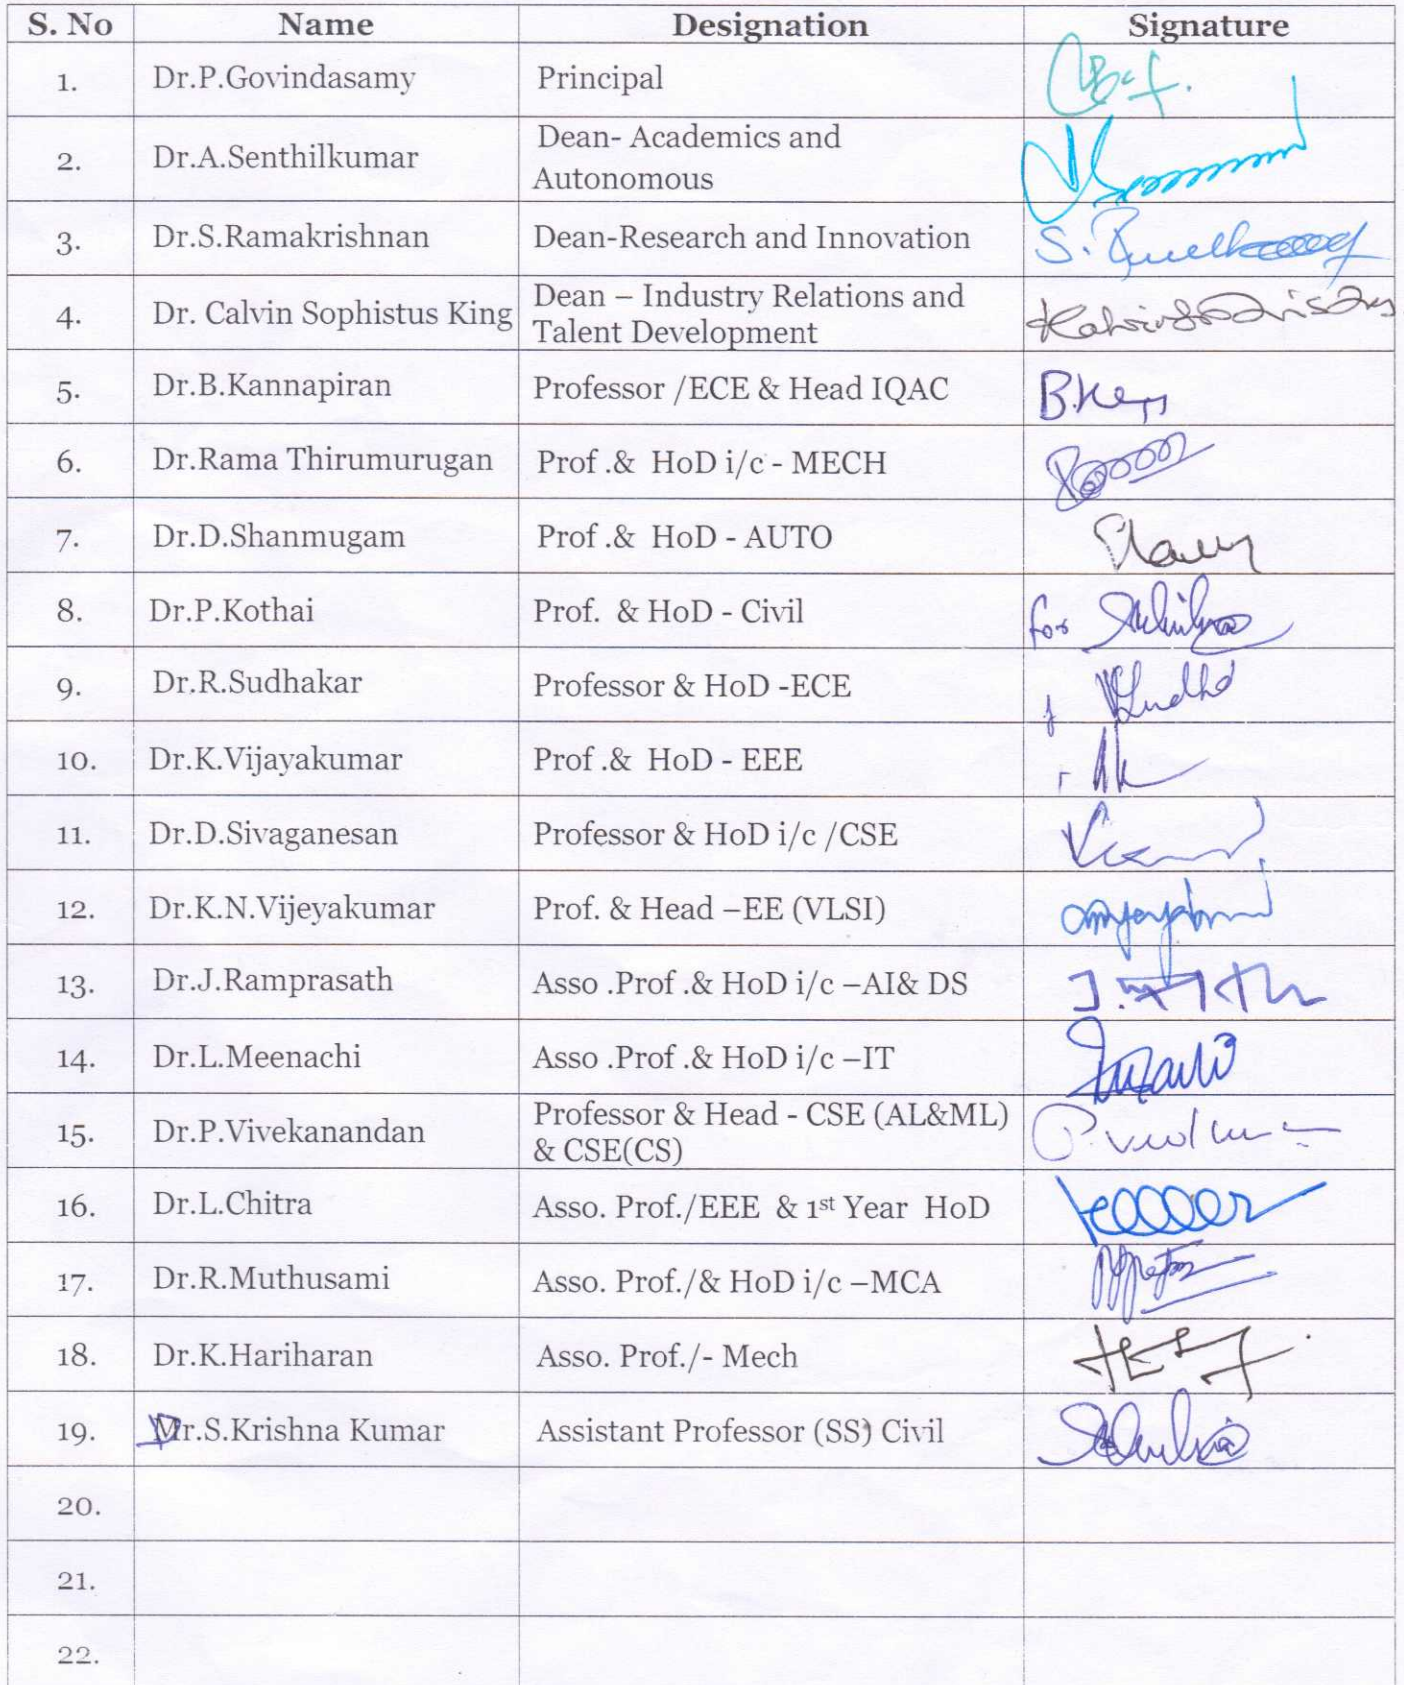 S. No Name Designation Signature
1. Dr.P.Govindasamy Principal
2. Dr.A.Senthilkumar Dean- Academics and
Autonomous
3. Dr.S.Ramakrishnan Dean-Research and Innovation S.
4. Dr. Calvin Sophistus King Dean – Industry Relations and
Talent Development
5. Dr.B.Kannapiran Professor /ECE & Head IQAC
6. Dr.Rama Thirumurugan Prof .& HoD i/c - MECH
7. Dr.D.Shanmugam Prof .& HoD - AUTO
8. Dr.P.Kothai Prof. & HoD - Civil for
9. Dr.R.Sudhakar Professor & HoD -ECE
10. Dr.K.Vijayakumar Prof .& HoD - EEE
11. Dr.D.Sivaganesan Professor & HoD i/c /CSE
12. Dr.K.N.Vijeyakumar Prof. & Head –EE (VLSI)
13. Dr.J.Ramprasath Asso .Prof .& HoD i/c –AI& DS
14. Dr.L.Meenachi Asso .Prof .& HoD i/c –IT
15. Dr.P.Vivekanandan Professor & Head - CSE (AL&ML)
& CSE(CS)
16. Dr.L.Chitra Asso. Prof./EEE & 1st Year HoD
17. Dr.R.Muthusami Asso. Prof./& HoD i/c –MCA
18. Dr.K.Hariharan Asso. Prof./- Mech
19. Dr.S.Krishna Kumar Assistant Professor (SS) Civil
20.
21.
22.